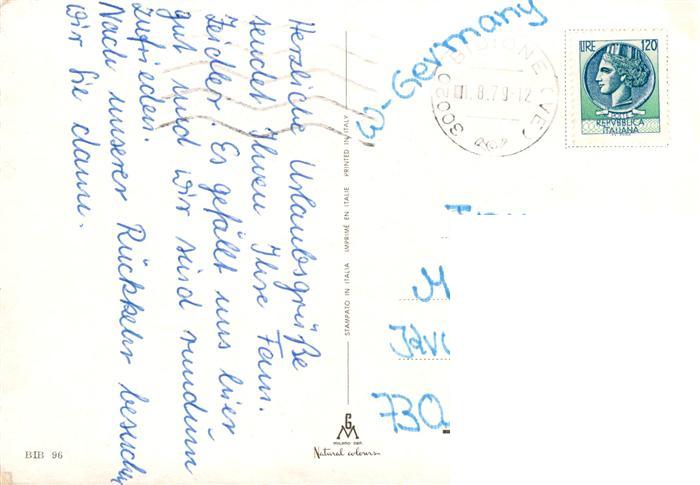 Herzliche Urlaubsgrüße
sendet Ihnen Ihre Fam.
Zeidler. Es gefällt uns hier
gut und wir sind rundum
zufrieden.
Nach unserer Rückkehr besuchen
wir Sie dann.
BIB 96
STAMPATO IN ITALIA IMPRIMÉ EN ITALIE PRINTED IN ITALY
GM
MILANO DEP.
Natural colours
D-Germany
30020 BIBIONE (VE)
1.8.79-12
LIRE 120
POSTE
REPVBBLICA
ITALIANA